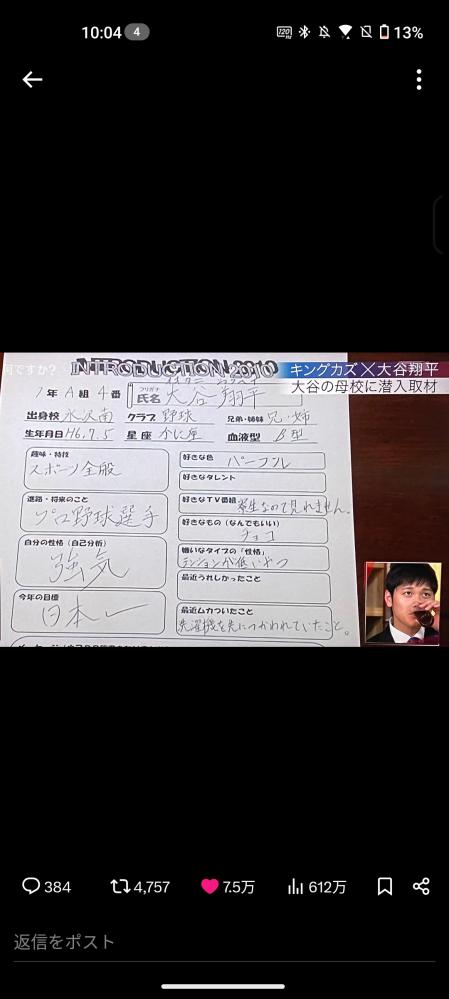 10:04 4 120 Hz 13%
何ですか?
キングカズ×大谷翔平
大谷の母校に潜入取材
INTRODUCTION 2010
1年 A組 4番
フリガナ
氏名 大谷 翔平
出身校 水沢南 クラブ 野球 兄弟・姉妹 兄・姉
生年月日 H6.7.5 星座 かに座 血液型 B型
趣味・特技
スポーツ全般
進路・将来のこと
プロ野球選手
自分の性格(自己分析)
強気
今年の目標
日本一
好きな色
パープル
好きなタレント
好きなTV番組
寮生なので見れません。
好きなもの(なんでもいい)
チョコ
嫌いなタイプの「性格」
テンションが低いやつ
最近うれしかったこと
最近ムカついたこと
洗濯機を先につかわれていたこと。
384 4,757 7.5万 612万
返信をポスト